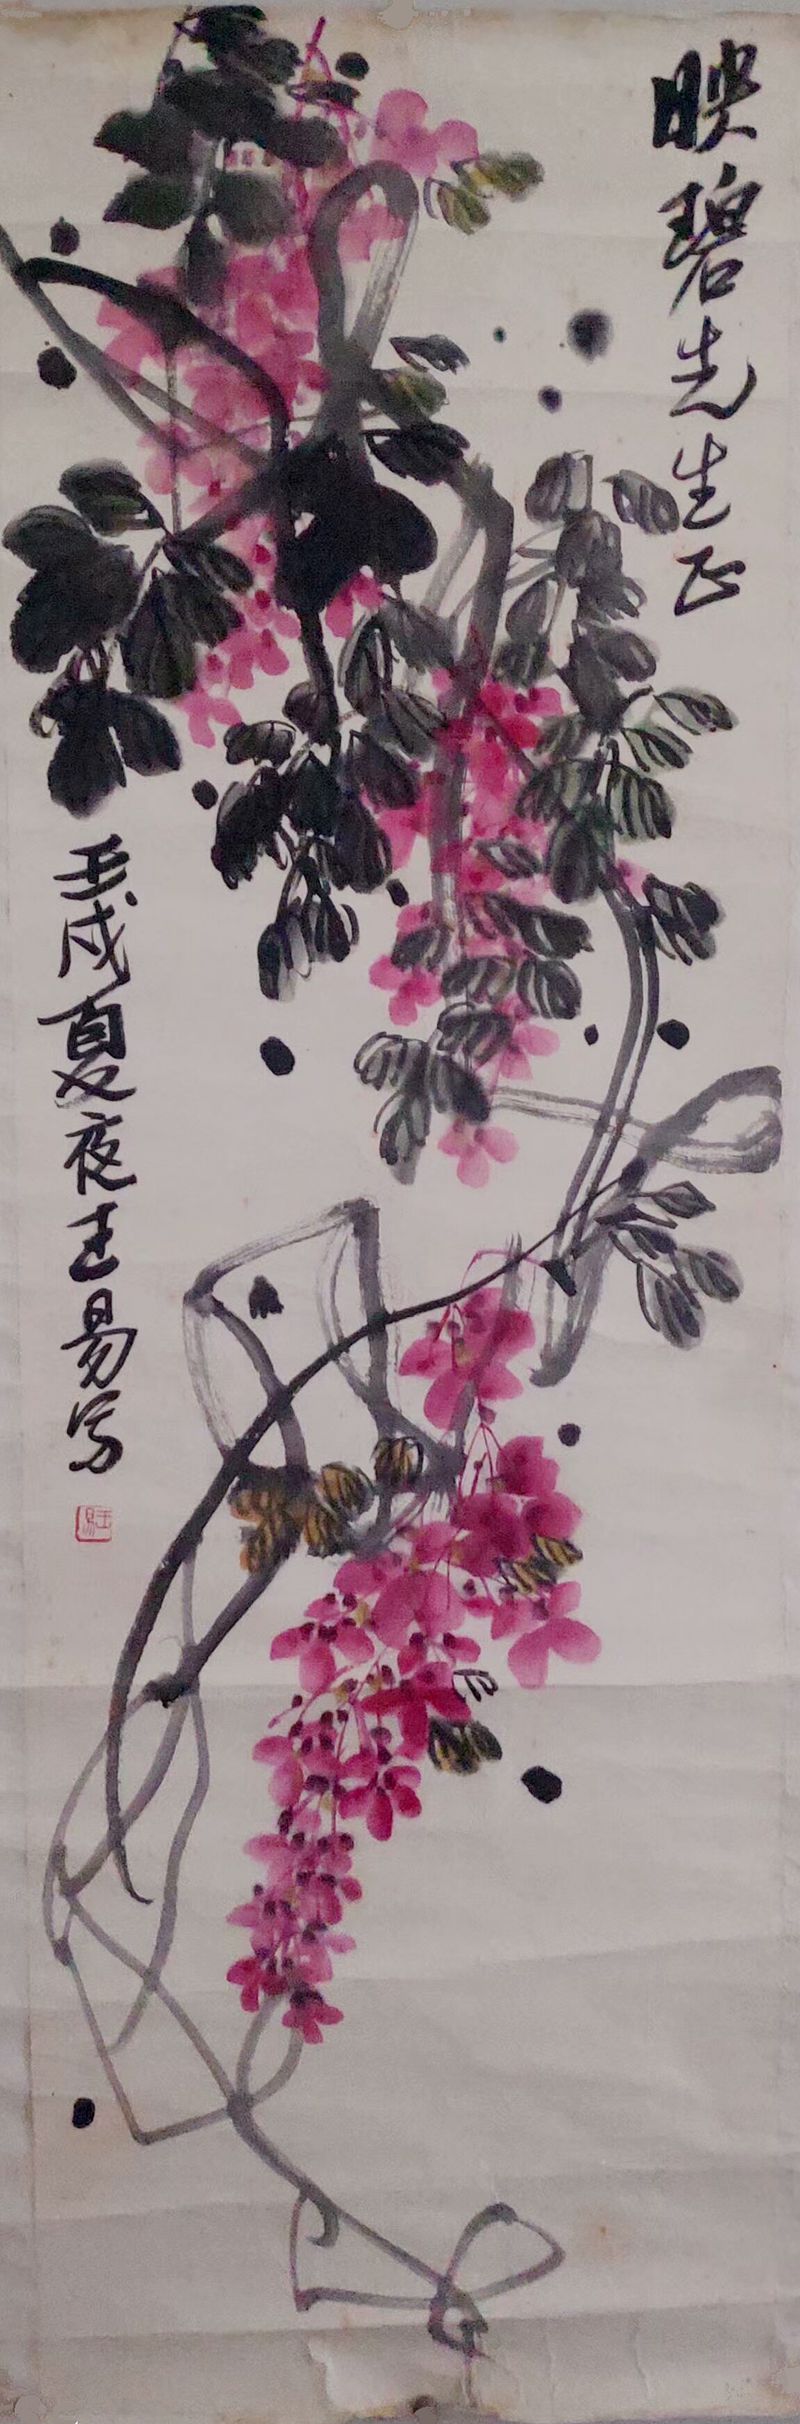 映碧先生正
壬戌夏夜王易写
王易